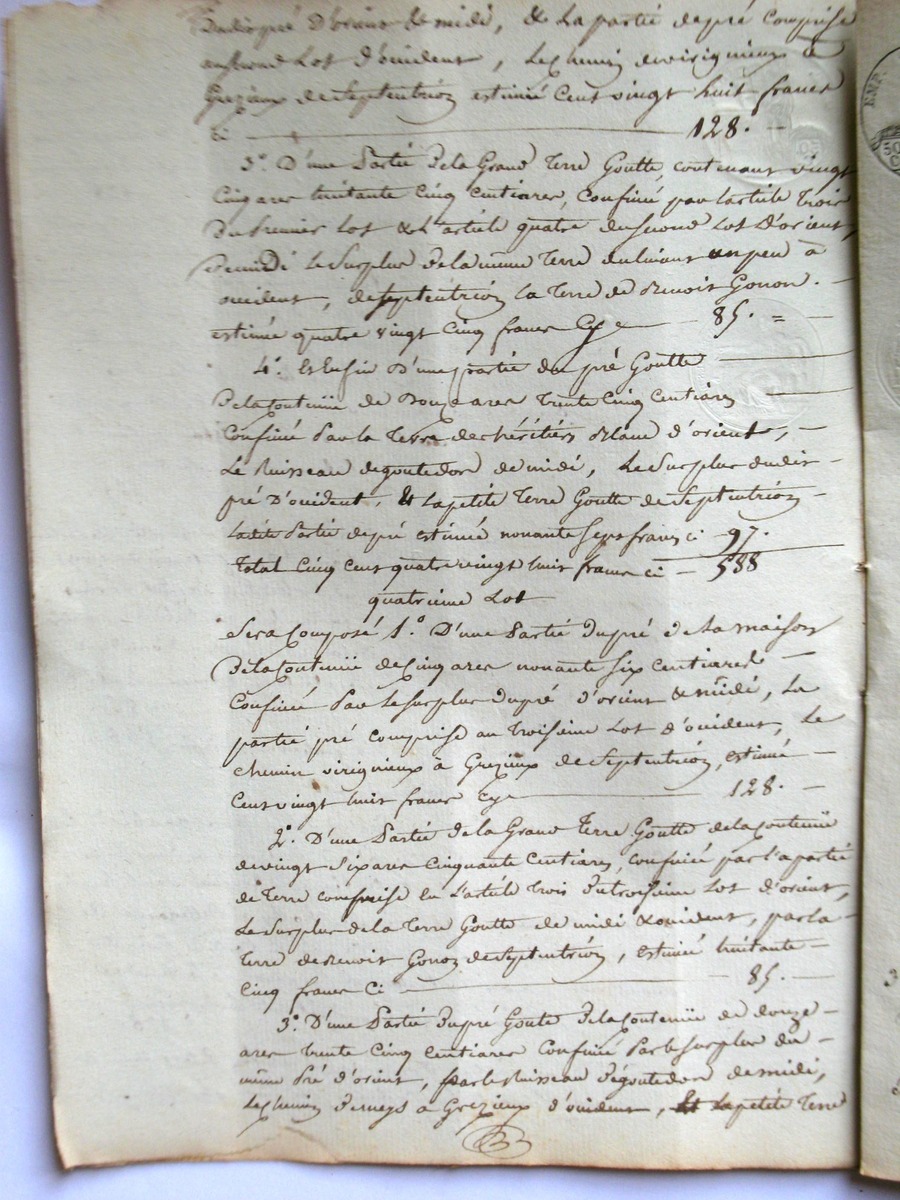 Dudit pré D'orient de midi, & La partie depré Comprise
ausecond Lot d'ouident, Lechemin devirignieux a
Grezieux deSeptentrion estimée Cent vingt huit francs
ci 128.
3º. D'une Partie Dela Grand Terre Goutte, contenant vingt
Cinq ares huitante Cinq Centiares, Confinée par L'article Trois
Du Premier Lot & L'article quatre dusecond Lot D'orient,
Demidi Le Surplus delamême Terre un peu à
ouident, deSeptentrion la Terre de Benoit Gonon.
estimée quatre vingt Cinq francs Cy 85. =
4º. Et Enfin D'une partie du pré Goutte
DelaContenüe de Douze ares Trente Cinq Centiares
Confiné Par la Terre des héritiers Blanc d'orient,
Le Ruisseau degoutedor de midi, Le Surplus dudit
pré D'ouident, Et Lapetite Terre Goutte de Septentrion
Ladite Partie depré estimée nonante Sept francs ci 97.
Total Cinq Cent quatre vingt huit francs ci 588
quatrième Lot
Sera Composé 1.º D'une Partie Dupré de La maison
DelaContenüe deCinq ares nonante Six Centiares
Confiné Par Le Surplus Dupré d'orient & midi, La
partie pré Comprise au Troisième Lot d'ouident, Le
chemin virignieux à Grezieux deSeptentrion, estimé
Cent vingt huit francs cy 128.
2º. D'une Partie de la Grand Terre Goutte delaContenüe
devingt Six ares Cinquante Centiares, confinée par Lapartie
de Terre comprise en L'article Trois dutroisième Lot d'orient,
Le Surplus de la Terre Goutte de midi & ouident, par la
Terre de Benoit Gonon deSeptentrion, estimée huitante
Cinq francs Ci 85.
3º. D'une Partie Dupré Goute DelaContenüe de douze
ares Trente Cinq Centiares Confiné Par le Surplus du
même Pré d'orient, par le Ruisseau Degoutedor de midi,
Lechemin a Grezieux d'ouident, Et Lapetite Terre
EMP.